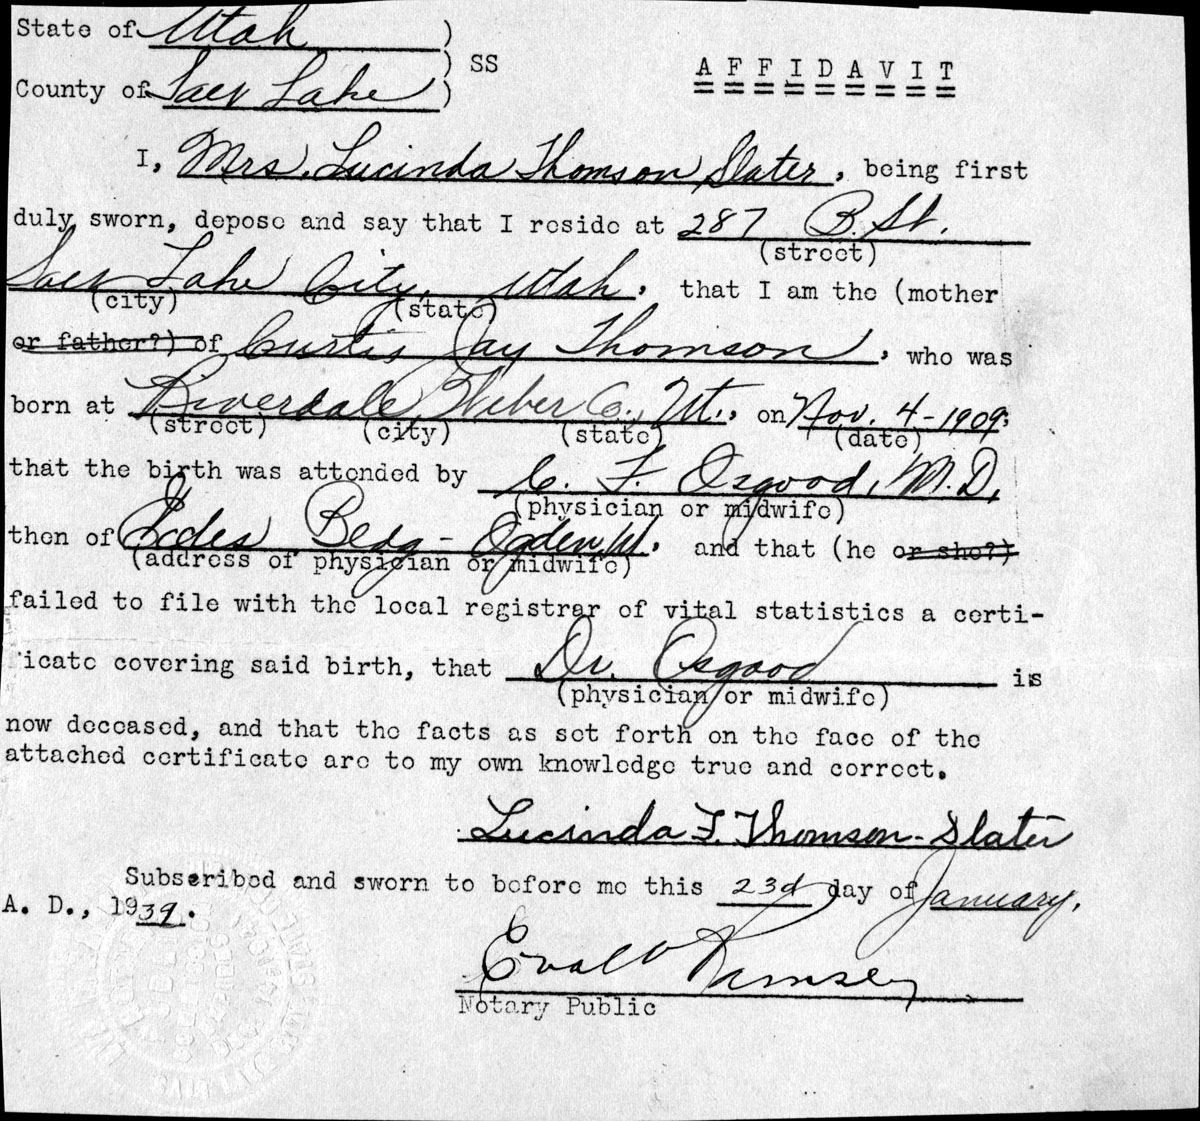 State of Utah )
) SS
County of Salt Lake )
AFFIDAVIT
I, Mrs. Lucinda Thomson Slater, being first
duly sworn, depose and say that I reside at 287 B. St.
(street)
Salt Lake City, Utah, that I am the (mother
(city) (state)
or father?) of Curtis Jay Thomson, who was
born at Riverdale, Weber Co., Ut., on Nov. 4-1909;
(street) (city) (state) (date)
that the birth was attended by C. F. Osgood, M.D.
(physician or midwife)
then of Eccles Bldg - Ogden, Ut. and that (he or she?)
(address of physician or midwife)
failed to file with the local registrar of vital statistics a certi-
ficate covering said birth, that Dr. Osgood is
(physician or midwife)
now deceased, and that the facts as set forth on the face of the
attached certificate are to my own knowledge true and correct.
Lucinda F. Thomson-Slater
Subscribed and sworn to before me this 23d day of January,
A. D., 1939.
Ramsey
Notary Public